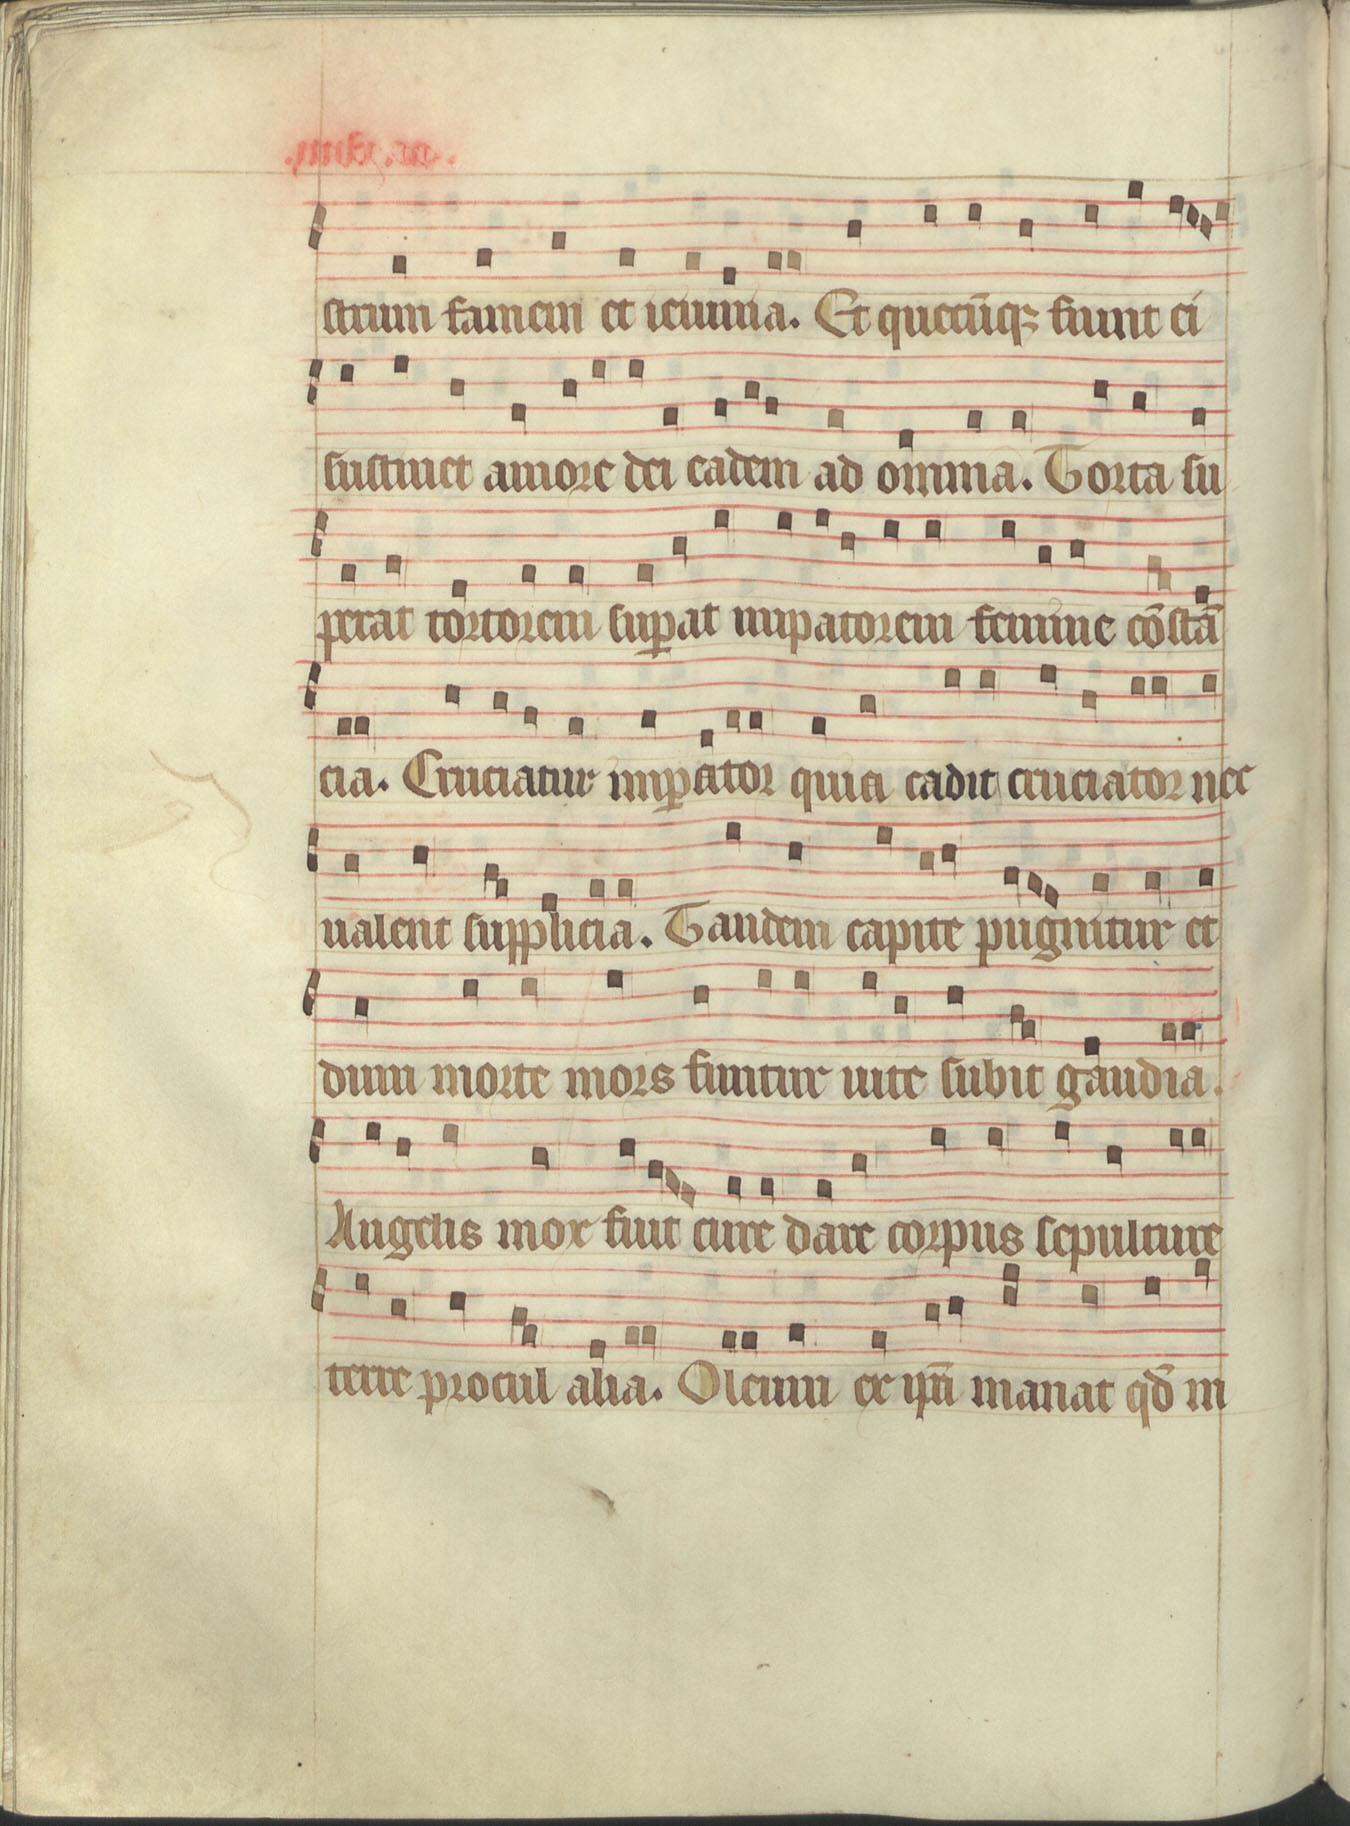 strum famem et ieiunia. Et quecūq; fiunt ei
sustinet amore dei eadem ad omnia. Torta su
perat tortorem suꝑat imꝑatorem femine cōstā
cia. Cruciatur imꝑator quia cadit cruciator nec
ualent supplicia. Tandem capite pugnitur et
dum morte mors finitur uite subit gaudia.
Angelis mox fuit cure dare corpus sepulture
terre procul alia. Oleum ex ip̄a manat qd̄ in